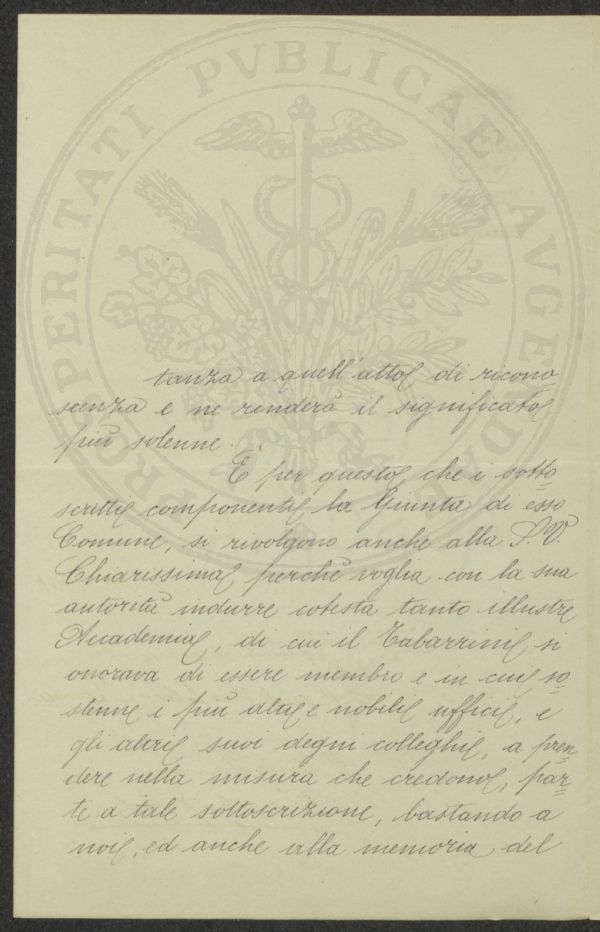 PROSPERITATI PVBLICAE AVGENDAE
tanza a quell'atto di ricono
scenza e ne renderà il significato
più solenne.
È per questo, che i sotto
scritti componenti la Giunta di esso
Comune, si rivolgono anche alla S. V.
Chiarissima, perchè voglia con la sua
autorità indurre cotesta tanto illustre
Accademia, di cui il Tabarrini si
onorava di essere membro e in cui so=
stenne i più alti e nobili uffici, e
gli altri suoi degni colleghi, a pren=
dere nella misura che credono, par=
te a tale sottoscrizione, bastando a
noi, ed anche alla memoria del